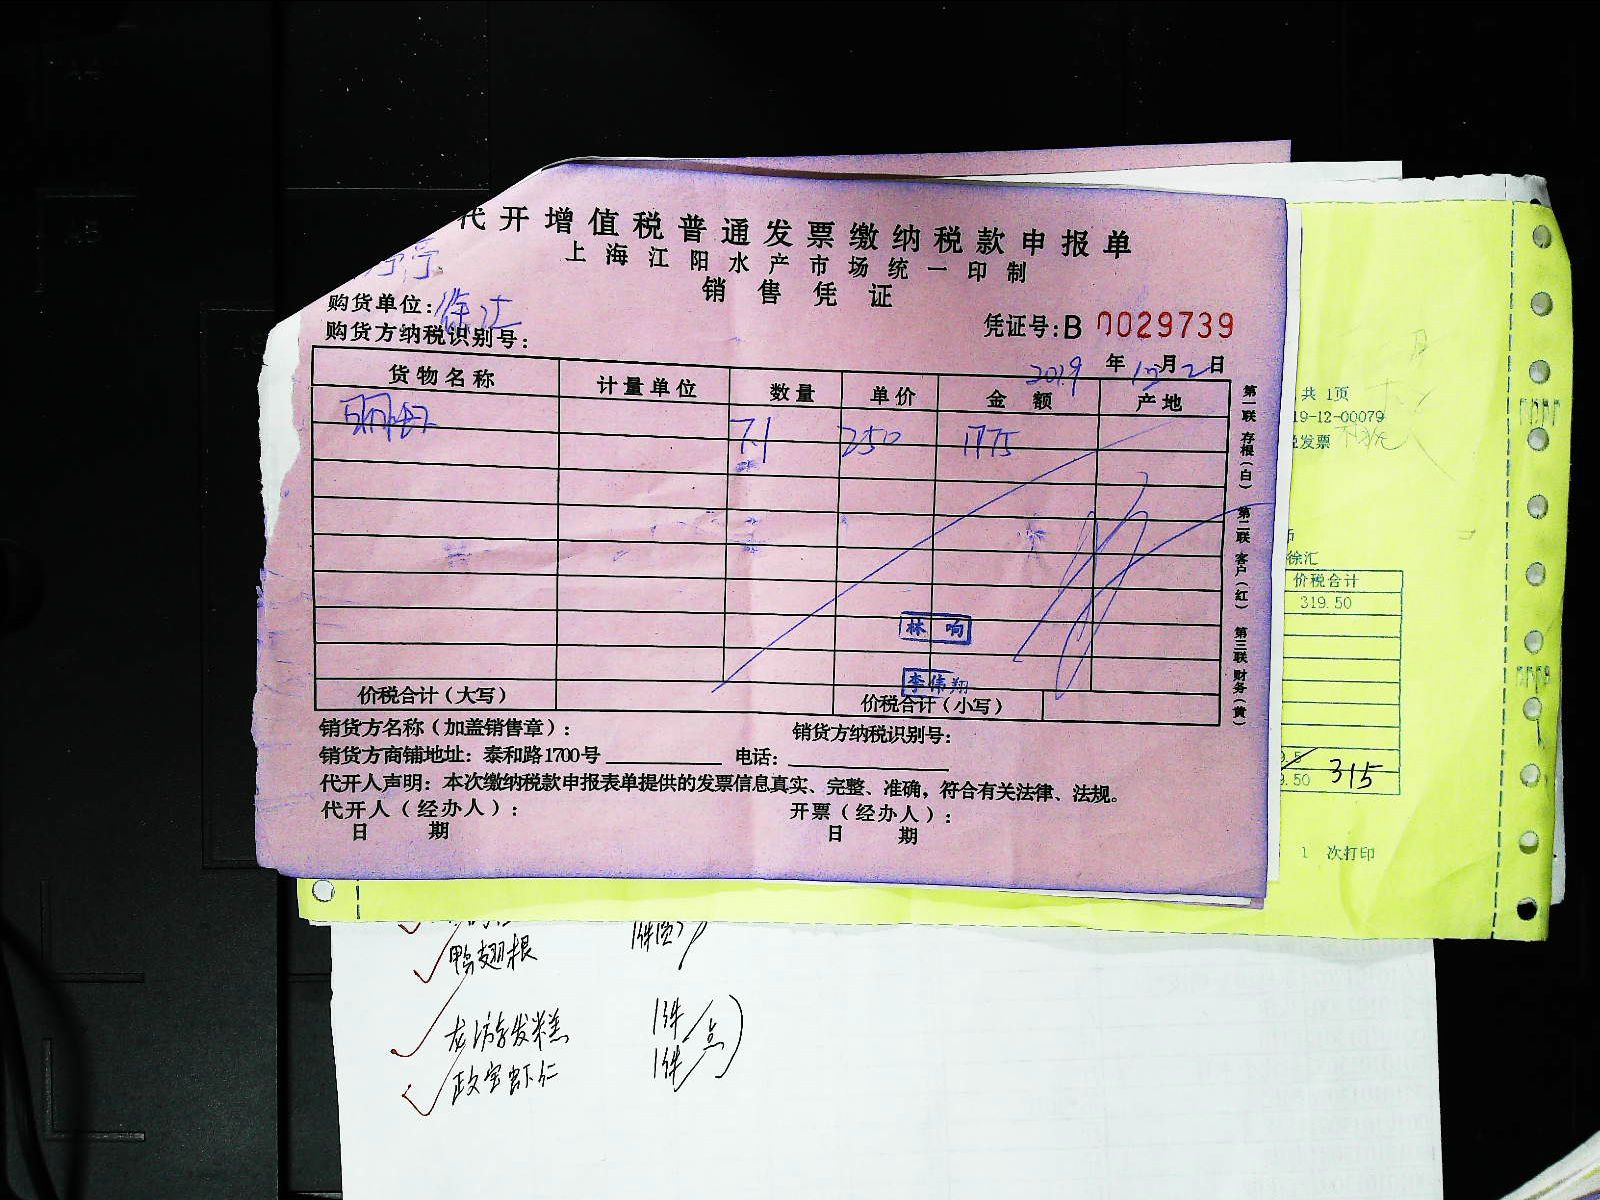 代开增值税普通发票缴纳税款申报单
上海江阳水产市场统一印制
销售凭证
购货单位:徐汇
购货方纳税识别号:
凭证号:B 0029739
2019 年 12 月 2 日
货物名称 计量单位 数量 单价 金额 产地
7.1 250 1775
林响
李伟翔
价税合计(大写) 价税合计(小写)
销货方名称(加盖销售章): 销货方纳税识别号:
销货方商铺地址:泰和路1700号 电话:
代开人声明:本次缴纳税款申报表单提供的发票信息真实、完整、准确,符合有关法律、法规。
代开人(经办人): 开票(经办人):
日期 日期
第一联 存根(白) 第二联 客户(红) 第三联 财务(黄)
共 1页
19-12-00079
发票
徐汇
价税合计
319.50
.50 315
1 次打印
鸭翅根
龙游发糕 1件
虾仁 1件